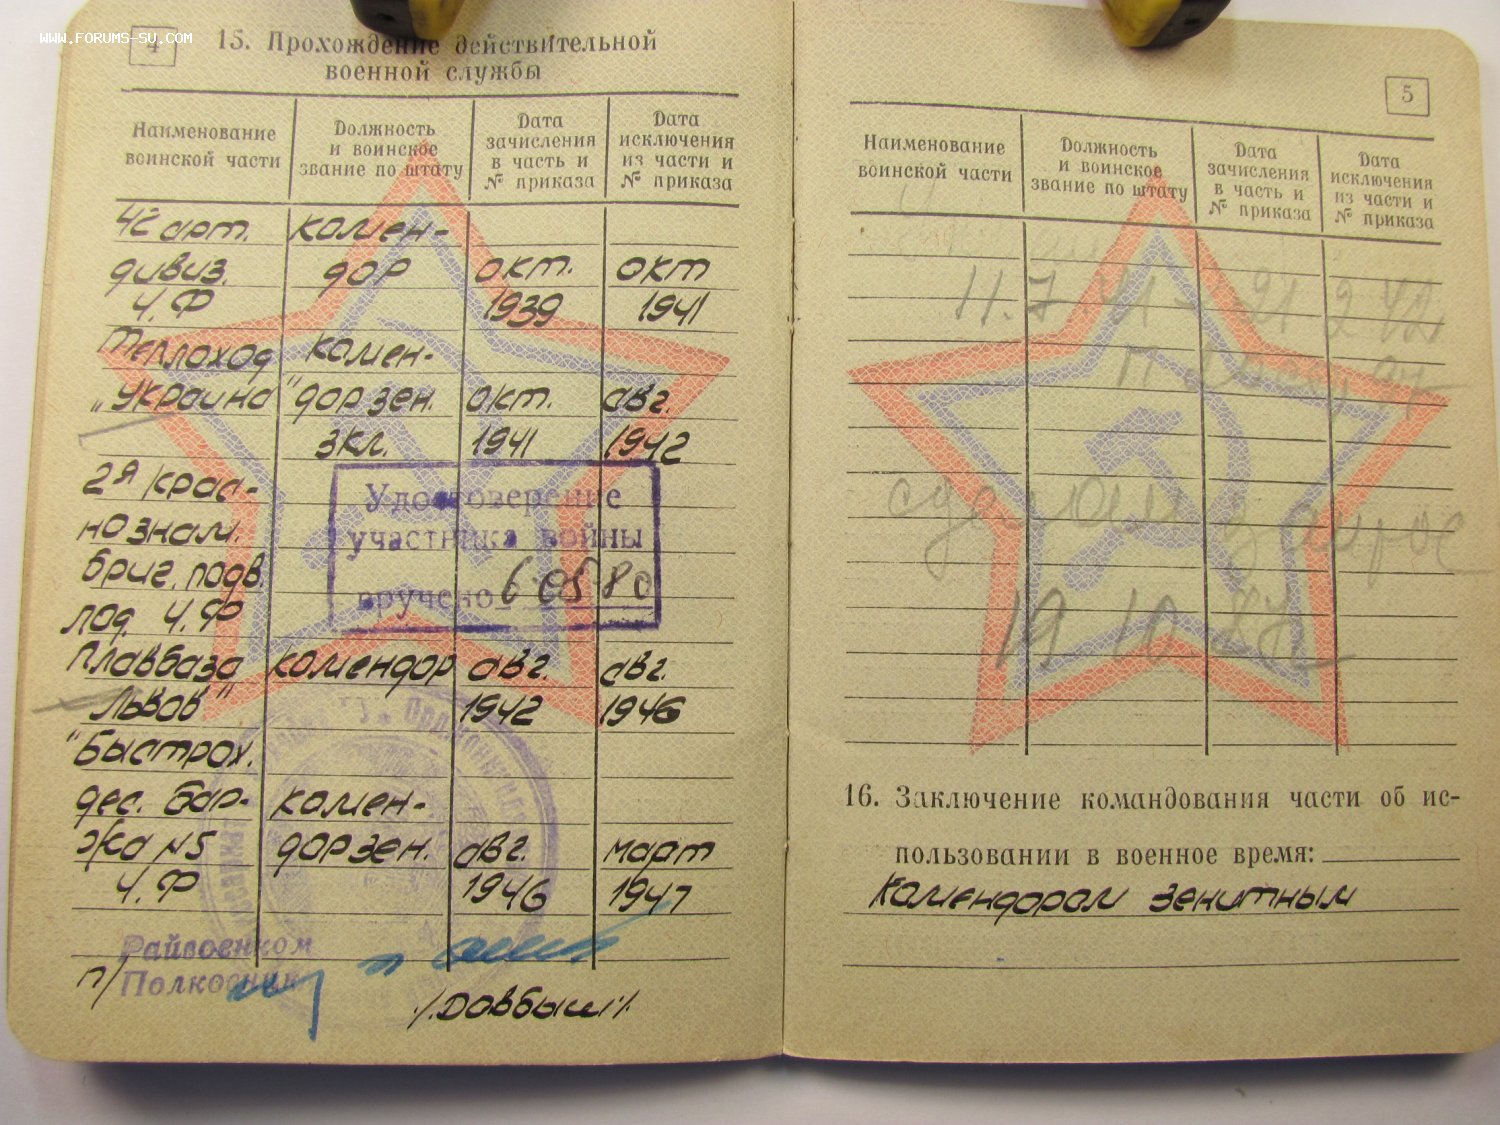 WWW.FORUMS-SU.COM
4
15. Прохождение действительной
военной службы
Наименование
воинской части
Должность
и воинское
звание по штату
Дата
зачисления
в часть и
№ приказа
Дата
исключения
из части и
№ приказа
42 арт. комен-
дивиз. дор окт. окт
Ч.Ф 1939 1941
Теплоход комен-
"Украина" дор зен. окт. авг.
экл. 1941 1942
2я крас-
нознам.
бриг. подв.
лод. Ч.Ф
Плавбаза комендор авг. авг.
Львов" 1942 1946
"Быстрох.
дес. бар- комен-
жа №5 дор зен. авг. март
Ч.Ф 1946 1947
Удостоверение
участника войны
вручено 6.05.80
Райвоенком
п/ Полковник
/Довбыш/
5
Наименование
воинской части
Должность
и воинское
звание по штату
Дата
зачисления
в часть и
№ приказа
Дата
исключения
из части и
№ приказа
11.7 41 - 21 2 42
сделан запрос
19 10 87
16. Заключение командования части об ис-
пользовании в военное время:
Комендором зенитным